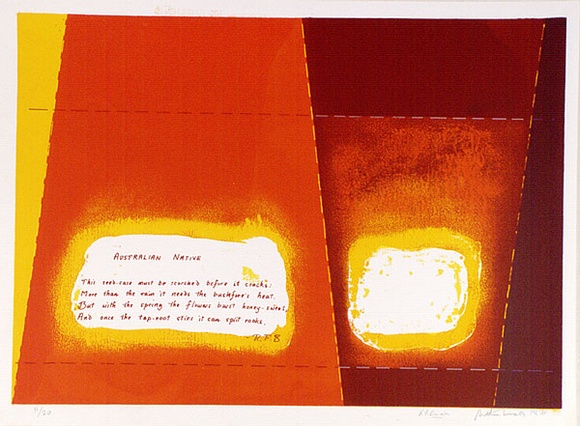 AUSTRALIAN NATIVE
This seed-case must be scorched before it cracks.
More than the rain it needs the buckfire's heat.
But with the spring the flowers burst honey-sweet,
And once the tap-root stirs it can split rocks.
R.F.B
/20